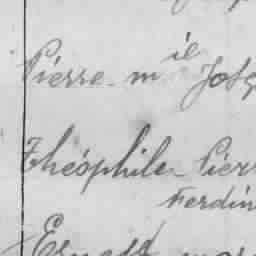 Pierre m ie Jose
Théophile Pierr
Ferdin
Ernest mar